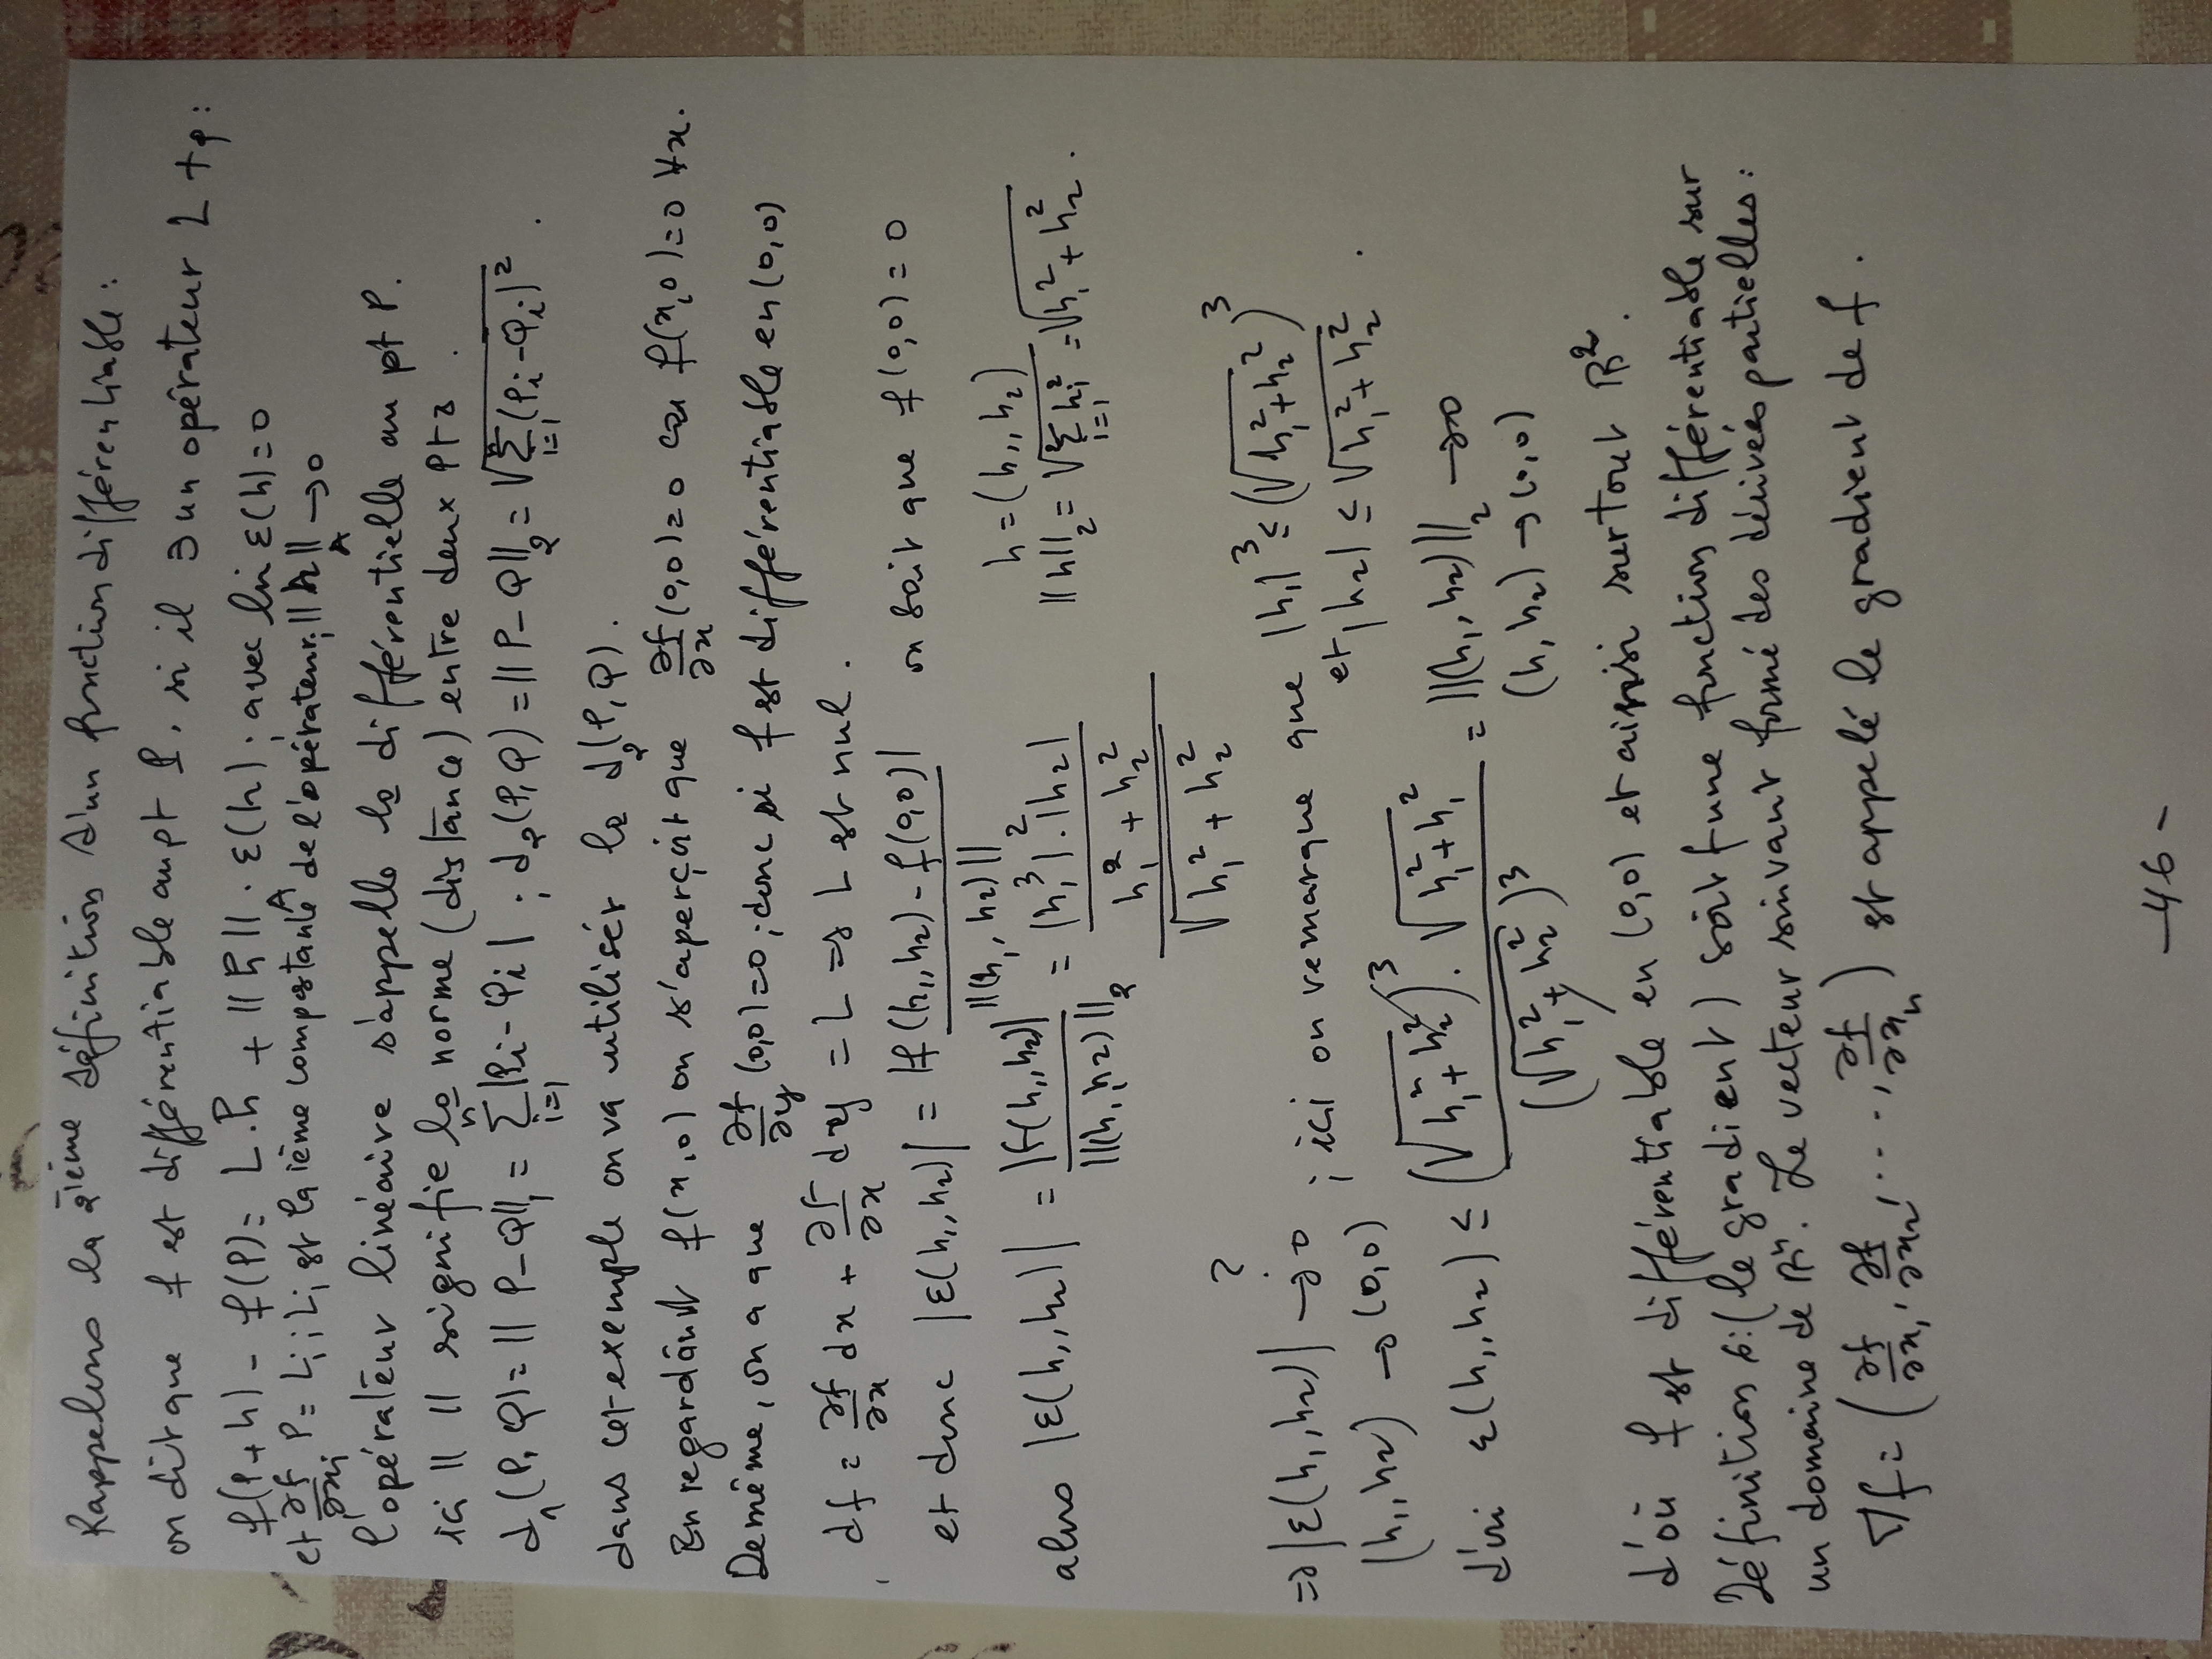 Rappelons la 2ième définition d'un fonction différentiable :
on dit que f est différentiable au pt P. si il ∃ un opérateur L tq :
f(P+h) - f(P) = L.h + ||h||. ε(h) ; avec lim ε(h) = 0
||h|| → 0
et ∂f/∂xi P = Li ; Li est la ième composante de l'opérateur.
l'opérateur linéaire s'appelle la différentielle au pt P.
ici || || signifie la norme (distance) entre deux pts.
d₁(P,Q) = ||P-Q||₁ = Σⁿᵢ₌₁ |Pi-Qi| ; d₂(P,Q) = ||P-Q||₂ = √Σⁿᵢ₌₁(Pi-Qi)² .
dans cet exemple on va utiliser la d₂(P,Q).
En regardant f(x,0) on s'aperçoit que ∂f/∂x (0,0) = 0 car f(x,0) = 0 ∀x.
De même, on a que ∂f/∂y (0,0) = 0 ; donc si f est différentiable en (0,0)
df = ∂f/∂x dx + ∂f/∂x dy = L ⇒ L est nul.
et donc |ε(h₁,h₂)| = |f(h₁,h₂) - f(0,0)| / ||(h₁,h₂)||₂ on sait que f(0,0) = 0
alors |ε(h₁,h₂)| = |f(h₁,h₂)| / ||(h₁,h₂)||₂ = (|h₁³|.|h₂| / h₁²+h₂²) / √h₁²+h₂² h = (h₁,h₂)
||h||₂ = √Σᵢ₌₁ hᵢ² = √h₁²+h₂² .
⇒ |ε(h₁,h₂)| → 0 ? ; ici on remarque que |h₁|³ ≤ (√h₁²+h₂²)³
(h₁,h₂) → (0,0) et |h₂| ≤ √h₁²+h₂² .
d'où ε(h₁,h₂) ≤ (√h₁²+h₂²)³ . √h₁²+h₁² / (√h₁²+h₂²)³ = ||(h₁,h₂)||₂ → 0
(h₁,h₂) → (0,0)
d'où f est différentiable en (0,0) et aissi surtout ℝ².
Définition 6: (le gradient) soit f une fonction différentiable sur
un domaine de ℝⁿ. Le vecteur suivant formé des dérivées partielles :
∇f = (∂f/∂x₁, ∂f/∂x₂, ...., ∂f/∂xₙ) est appelé le gradient de f .
-46-